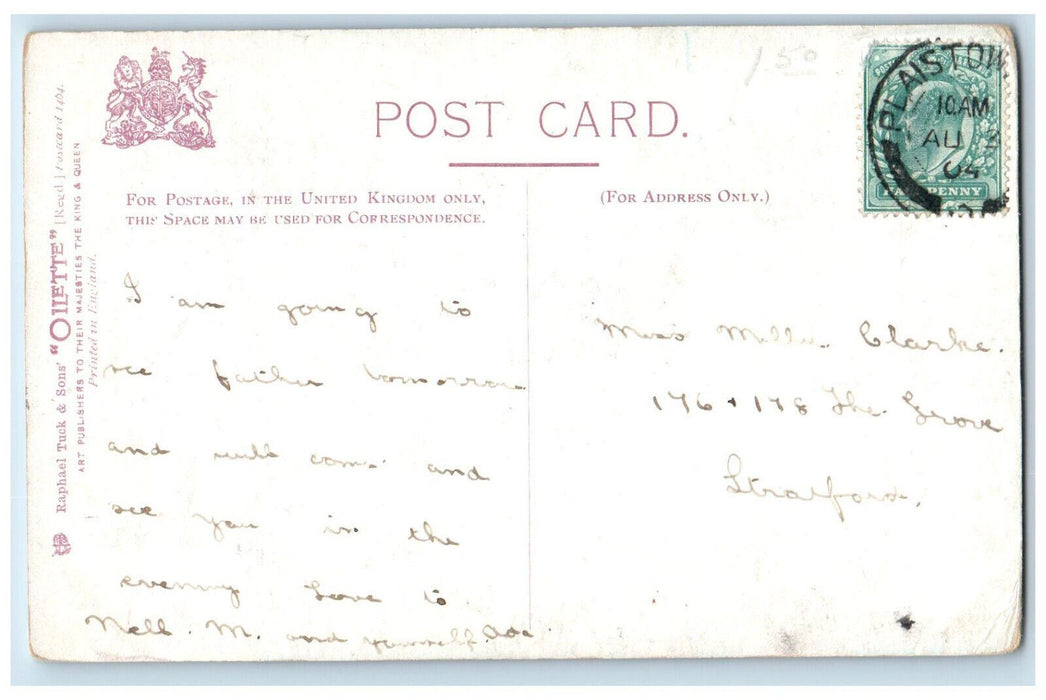 150
POST CARD.
FOR POSTAGE, IN THE UNITED KINGDOM ONLY,
THIS SPACE MAY BE USED FOR CORRESPONDENCE.
(FOR ADDRESS ONLY.)
Raphael Tuck & Sons' "OILETTE" [Regd.] Postcard 1404.
ART PUBLISHERS TO THEIR MAJESTIES THE KING & QUEEN
Printed in England.
PLAISTOW
10 AM
AU 2
04
HALFPENNY
I am going to
see father tomorrow
and will come and
see you in the
evening Love to
Nell. M. and yourself. Ada
Miss Clarke.
176 + 178 The Grove
Stratford,